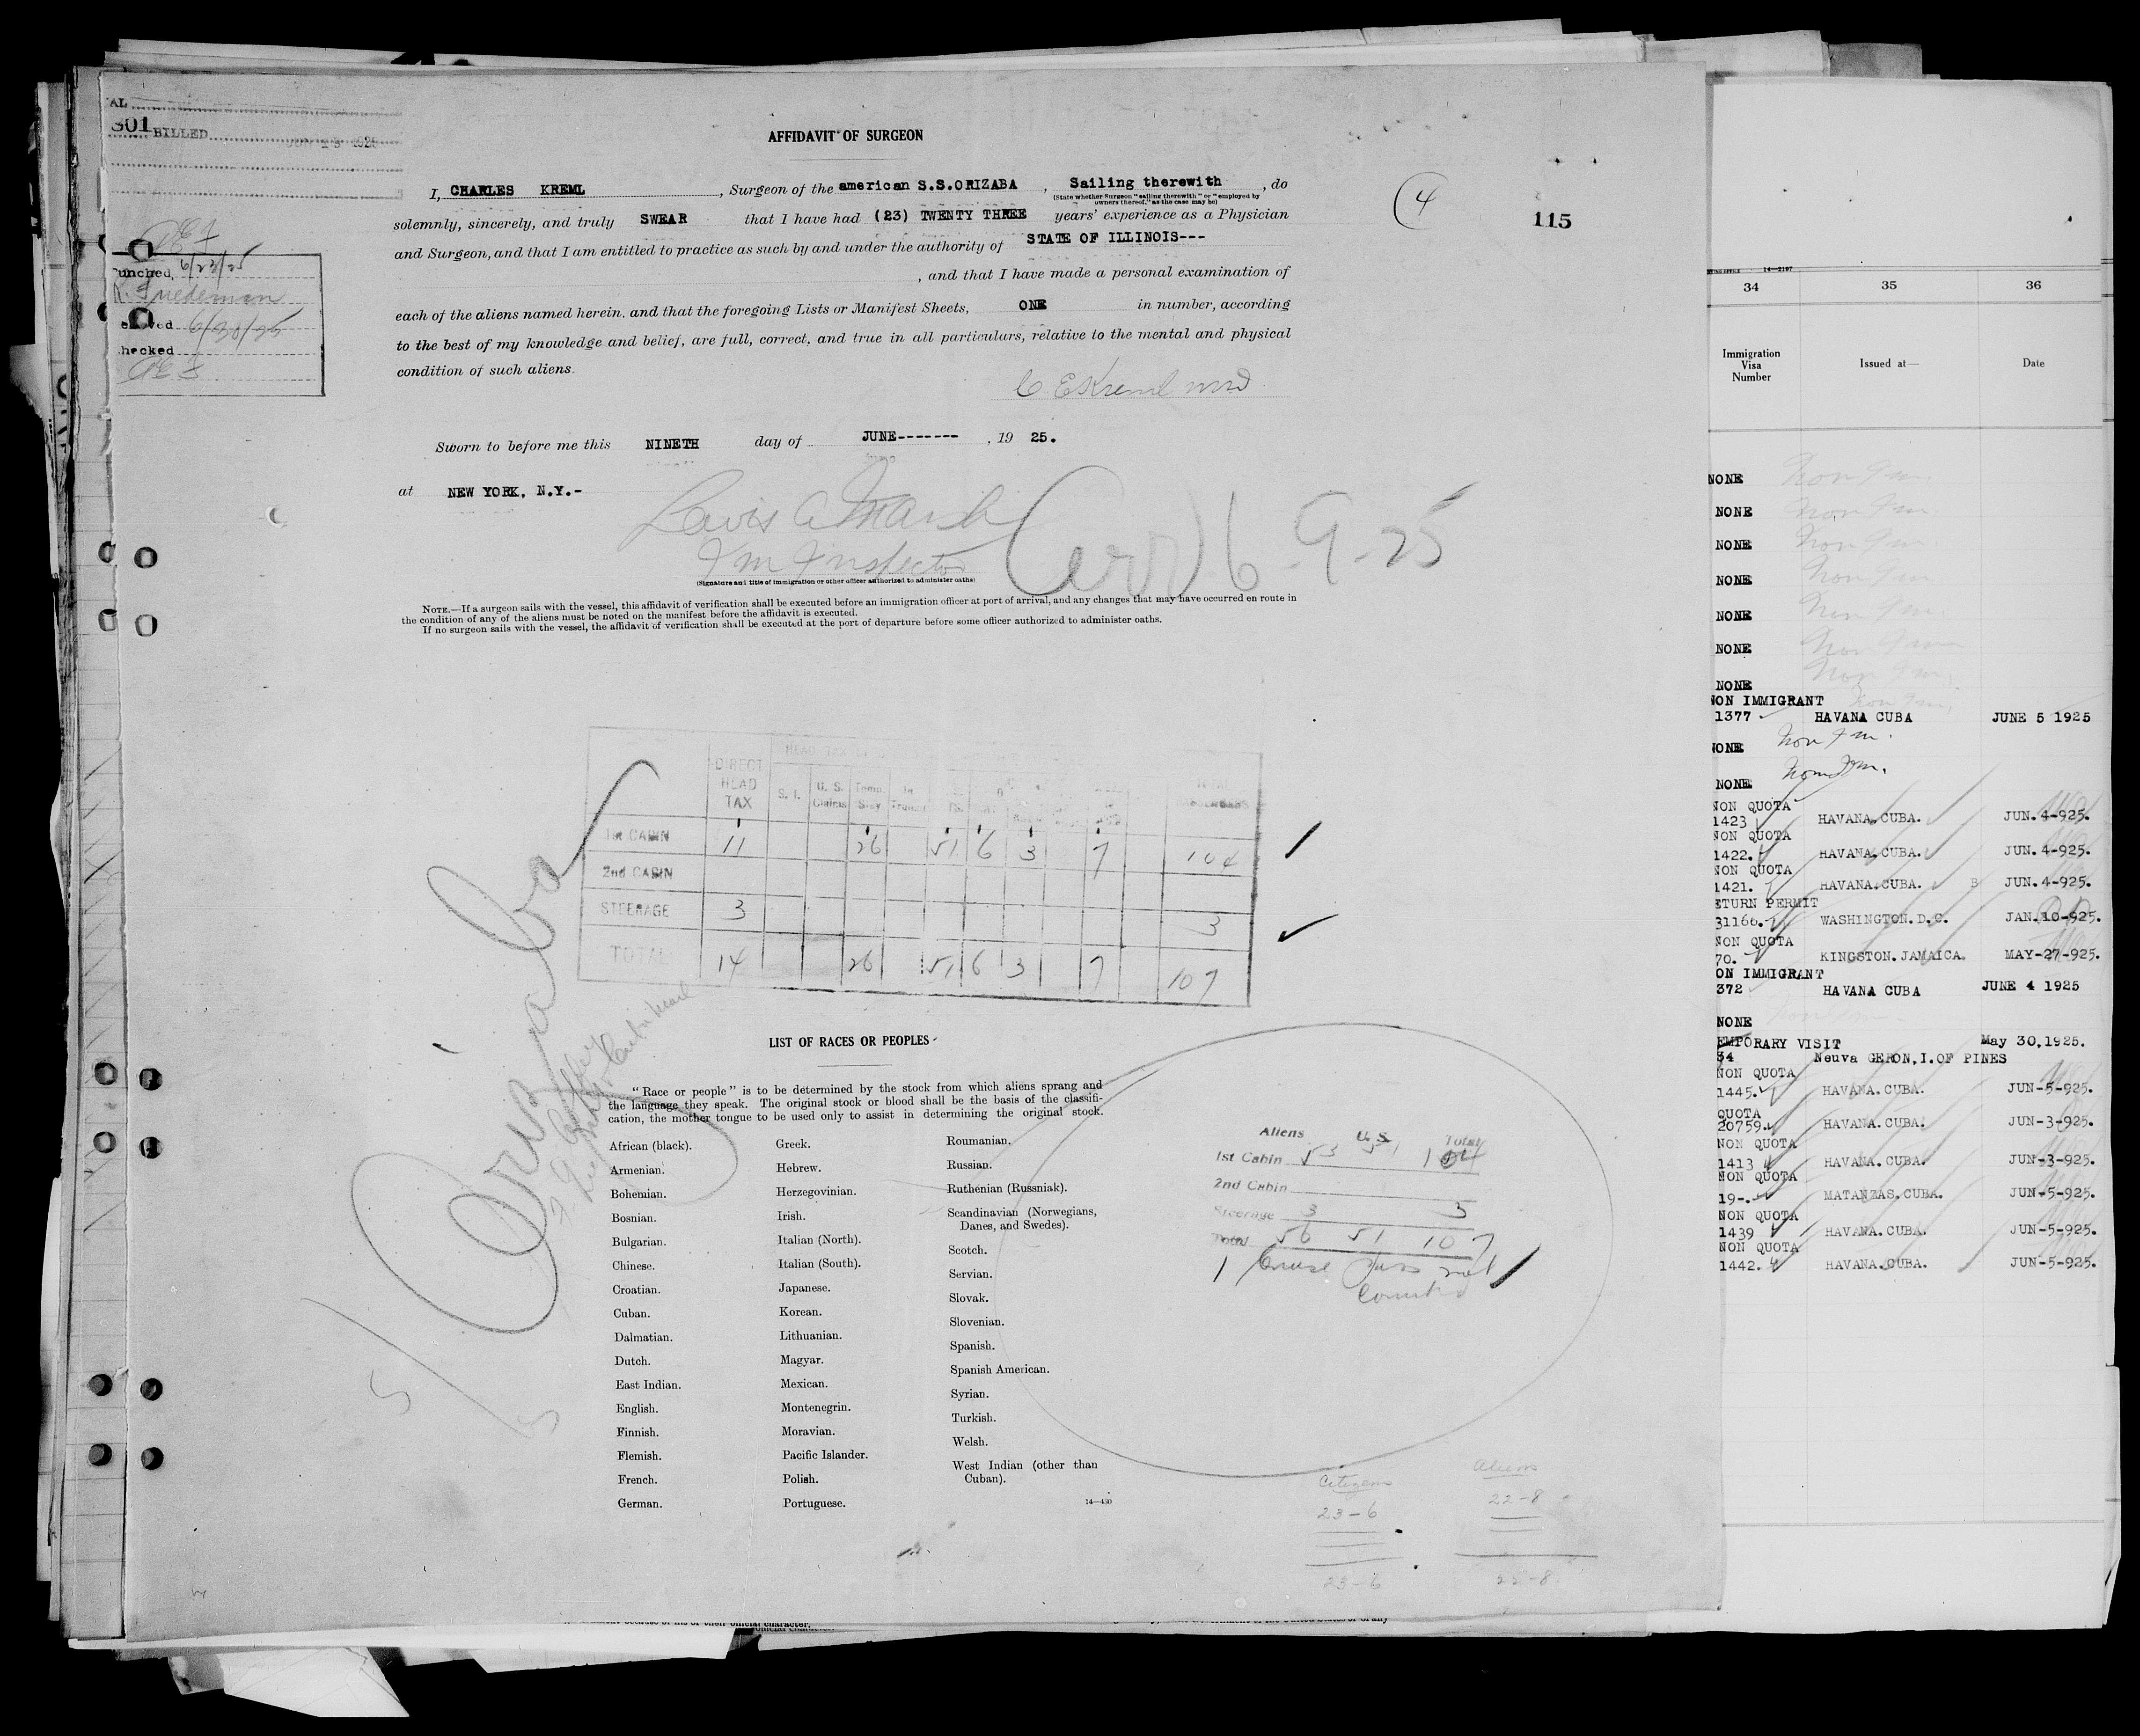 301 BILLED
AFFIDAVIT OF SURGEON
I, CHARLES KREML, Surgeon of the american S.S.ORIZABA, Sailing therewith, do
(State whether Surgeon "sailing therewith" or "employed by
owners thereof," as the case may be)
solemnly, sincerely, and truly SWEAR that I have had (23) TWENTY THREE years' experience as a Physician
and Surgeon, and that I am entitled to practice as such by and under the authority of STATE OF ILLINOIS---
, and that I have made a personal examination of
each of the aliens named herein. and that the foregoing Lists or Manifest Sheets, ONE in number, according
to the best of my knowledge and belief, are full, correct, and true in all particulars, relative to the mental and physical
condition of such aliens.
C E Kreml MD
Sworn to before me this NINETH day of JUNE-------, 19 25.
at NEW YORK, N.Y.-
4
115
6/23/25
6/30/25
Im Inspector
6-9-25
(Signature and title of immigration or other officer authorized to administer oaths)
NOTE.—If a surgeon sails with the vessel, this affidavit of verification shall be executed before an immigration officer at port of arrival, and any changes that may have occurred en route in
the condition of any of the aliens must be noted on the manifest before the affidavit is executed.
If no surgeon sails with the vessel, the affidavit of verification shall be executed at the port of departure before some officer authorized to administer oaths.
DIRECT HEAD TAX S. I. U. S. Claims Temp. Stay In Transit
1st CABIN 11 26 51 6 3 7 104
2nd CABIN
STEERAGE 3 3
TOTAL 14 26 51 6 3 7 107
Orizaba
LIST OF RACES OR PEOPLES
"Race or people" is to be determined by the stock from which aliens sprang and
the language they speak. The original stock or blood shall be the basis of the classifi-
cation, the mother tongue to be used only to assist in determining the original stock.
African (black).
Armenian.
Bohemian.
Bosnian.
Bulgarian.
Chinese.
Croatian.
Cuban.
Dalmatian.
Dutch.
East Indian.
English.
Finnish.
Flemish.
French.
German.
Greek.
Hebrew.
Herzegovinian.
Irish.
Italian (North).
Italian (South).
Japanese.
Korean.
Lithuanian.
Magyar.
Mexican.
Montenegrin.
Moravian.
Pacific Islander.
Polish.
Portuguese.
Roumanian.
Russian.
Ruthenian (Russniak).
Scandinavian (Norwegians,
Danes, and Swedes).
Scotch.
Servian.
Slovak.
Slovenian.
Spanish.
Spanish American.
Syrian.
Turkish.
Welsh.
West Indian (other than
Cuban).
14—430
Aliens U. S. Total
1st Cabin 53 51 104
2nd Cabin
Steerage 3 3
Total 56 51 107
1 Cruise Pass not
Counted
Citizens
23-6
23-6
Aliens
22-8
22-8
14—2197
34 35 36
Immigration
Visa
Number
Issued at—
Date
NONE Non Im
NONE Non Im
NONE Non Im
NONE Non Im
NONE Non Im
NONE Non Im
NONE Non Im
NON IMMIGRANT
1377 HAVANA CUBA JUNE 5 1925
NONE Non Im.
NONE Non Im.
NON QUOTA
1423 HAVANA.CUBA. JUN.4-925.
NON QUOTA
1422. HAVANA.CUBA. JUN.4-925.
NON QUOTA
1421. HAVANA.CUBA. B JUN.4-925.
ETURN PERMIT
31166. WASHINGTON.D.C. JAN.10-925.
NON QUOTA
70. KINGSTON.JAMAICA. MAY-27-925.
ON IMMIGRANT
372 HAVANA CUBA JUNE 4 1925
NONE
EMPORARY VISIT May 30,1925.
34 Neuva GERON,I.OF PINES
NON QUOTA
1445. HAVANA.CUBA. JUN-5-925.
QUOTA
20759. HAVANA.CUBA. JUN-3-925.
NON QUOTA
1413 HAVANA.CUBA. JUN-3-925.
NON QUOTA
19-. MATANZAS.CUBA. JUN-5-925.
NON QUOTA
1439 HAVANA.CUBA. JUN-5-925.
NON QUOTA
1442. HAVANA.CUBA. JUN-5-925.